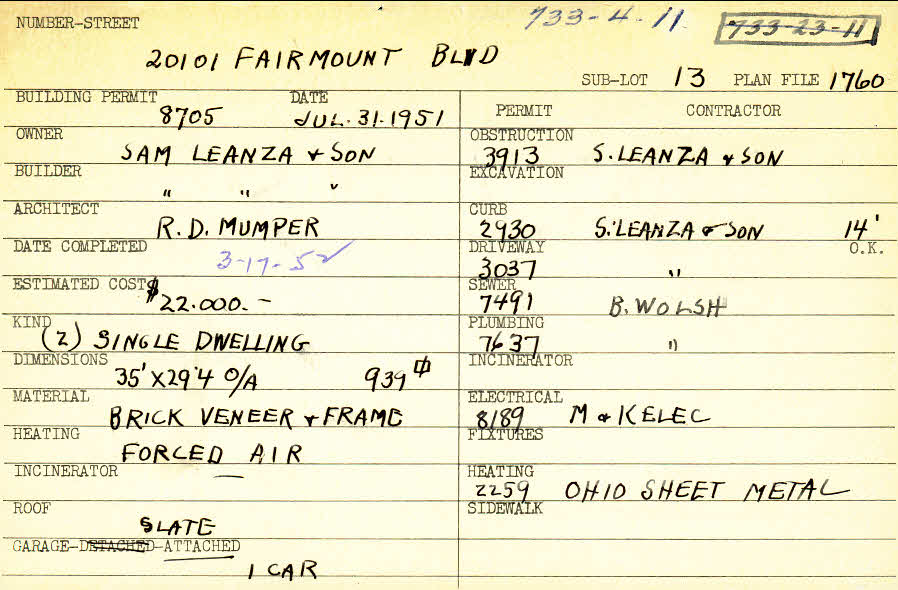 NUMBER-STREET 733-4-11 733-23-11
20101 FAIRMOUNT BLVD
SUB-LOT 13 PLAN FILE 1760
BUILDING PERMIT DATE
8705 JUL. 31. 1951
OWNER
SAM LEANZA & SON
BUILDER
" " "
ARCHITECT
R. D. MUMPER
DATE COMPLETED
3-17-52
ESTIMATED COST $
22.000.-
KIND
(2) SINGLE DWELLING
DIMENSIONS
35' X 29'4 O/A 939
MATERIAL
BRICK VENEER & FRAME
HEATING
FORCED AIR
INCINERATOR
—
ROOF
SLATE
GARAGE-DETACHED-ATTACHED
1 CAR
PERMIT CONTRACTOR
OBSTRUCTION
3913 S. LEANZA & SON
EXCAVATION
CURB
2930 S. LEANZA & SON 14'
DRIVEWAY O.K.
3037 "
SEWER
7491 B. WOLSH
PLUMBING
7637 "
INCINERATOR
ELECTRICAL
8189 M & K ELEC
FIXTURES
HEATING
2259 OHIO SHEET METAL
SIDEWALK